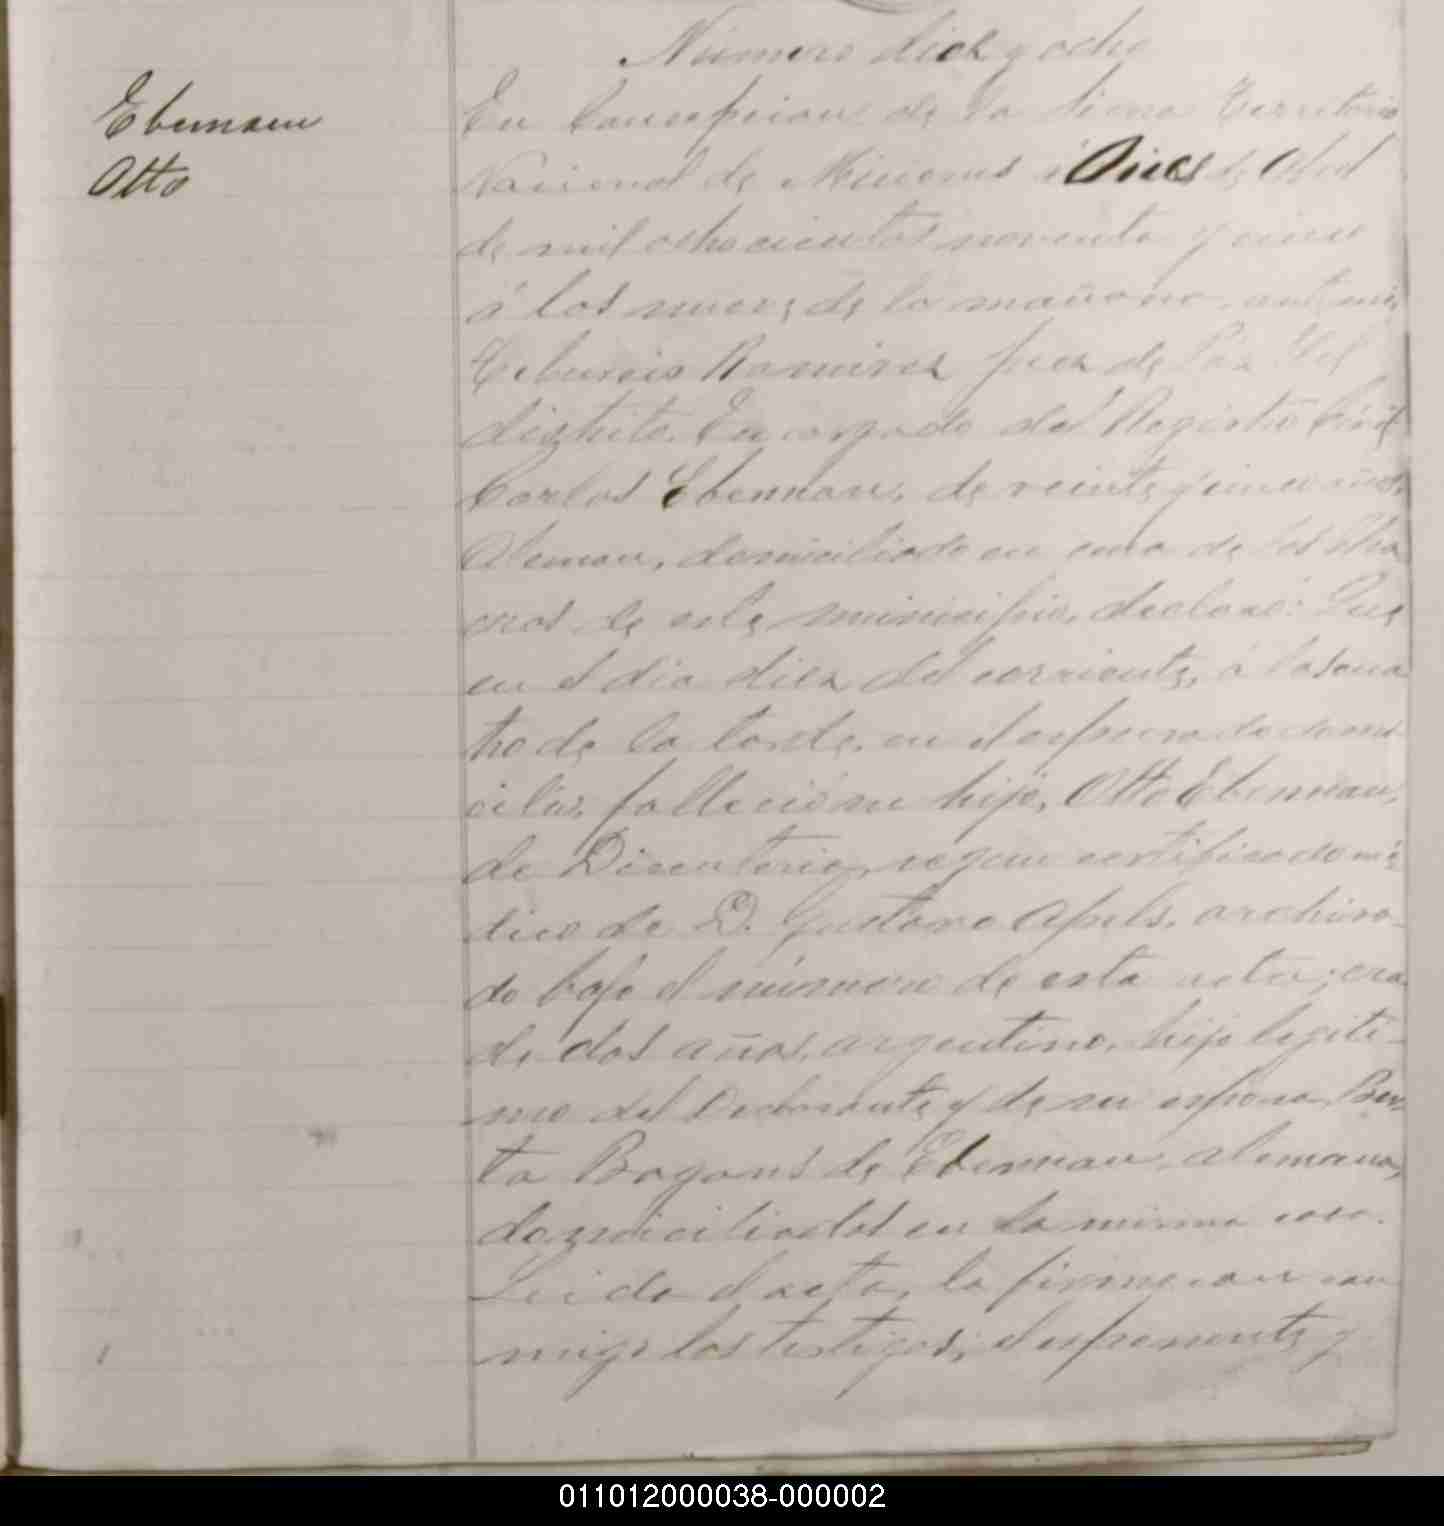 Número diez y ocho
Ebennau
Otto
En Concepcion de la Sierra Territorio
Nacional de Misiones á Once de Abril
de mil ochocientos noventa y cinco
á las nueve de la mañana, ante mi,
Tiburcio Ramirez Juez de Páz del
distrito Encargado del Registro Civil
Carlos Ebennau, de veinte y cinco años,
Aleman, domiciliado en una de las
de este municipio, declaró: Que
en el dia diez del corriente, á las cua
tro de la tarde, en el espresado domi
cilio, falleció su hijo, Otto Ebennau,
de Disenteria, segun certificado mé
dico de D. Gustavo Apels, archiva-
do bajo el número de esta acta; era
de dos años, argentino, hijo legiti-
mo del Declarante y de su esposa,
Bogans de Ebennau, alemana,
domiciliados en la misma casa.
Leida el acta, la firmaron con
migo los testigos, el esponente y
011012000038-000002